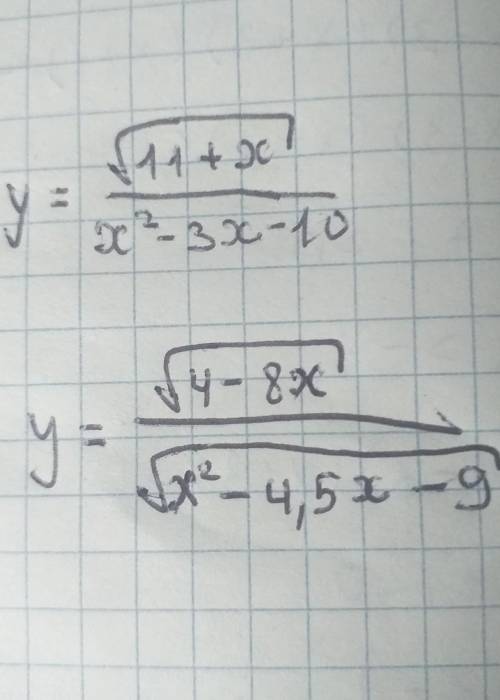 y = √(11 + x) / (x² - 3x - 10)
y = √(4 - 8x) / √(x² - 4,5x - 9)